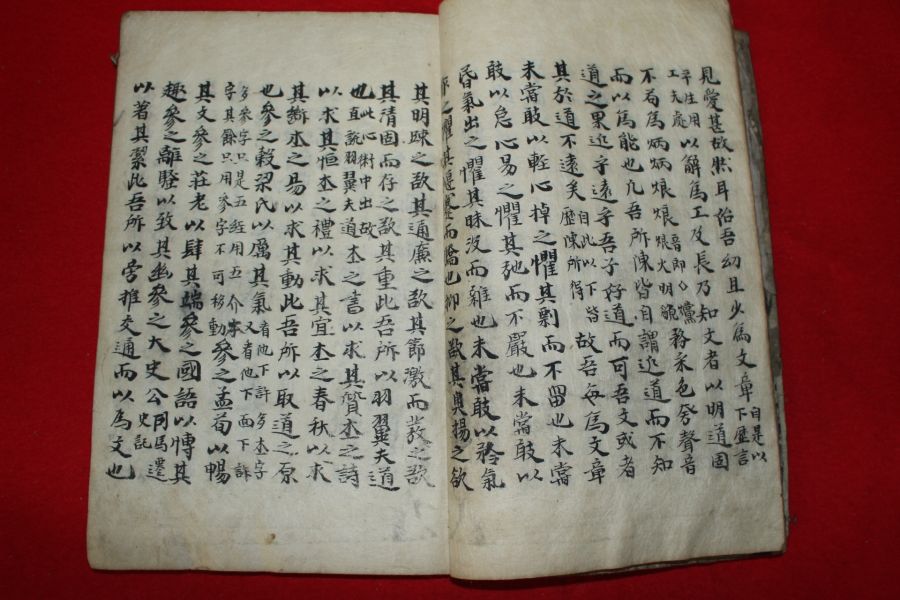 見愛甚故然耳始吾幼且少爲文章自是以下歷言
平生用工夫處以辭爲工及長乃知文者以明道固
不苟爲炳炳烺烺音朗烺火明貌務采色夸聲音
而以爲能也凡吾所陳皆自謂近道而不知
道之果近乎遠乎吾子好道而可吾文或者
其於道不遠矣自此以下皆歷陳所得故吾每爲文章
未嘗敢以輕心掉之懼其剽而不留也未嘗
敢以怠心易之懼其弛而不嚴也未嘗敢以
昏氣出之懼其昧没而雜也未嘗敢以矜氣
作之懼其偃蹇而驕也抑之欲其奥揚之欲
其明踈之欲其通廉之欲其節激而發之欲
其清固而存之欲其重此吾所以羽翼夫道
也此心術中出故直說羽翼夫道夲之書以求其質夲之詩
以求其恒夲之禮以求其宜夲之春秋以求
其斷夲之易以求其動此吾所以取道之原
也參之穀梁氏以厲其氣看他下許多夲字又看他下面下許
多參字只是五經用五个夲字其餘只用參字不可移動參之孟荀以暢
其支參之莊老以肆其端參之國語以博其
趣參之離騷以致其幽參之大史公司馬遷史記
以著其潔此吾所以旁推交通而以爲文也